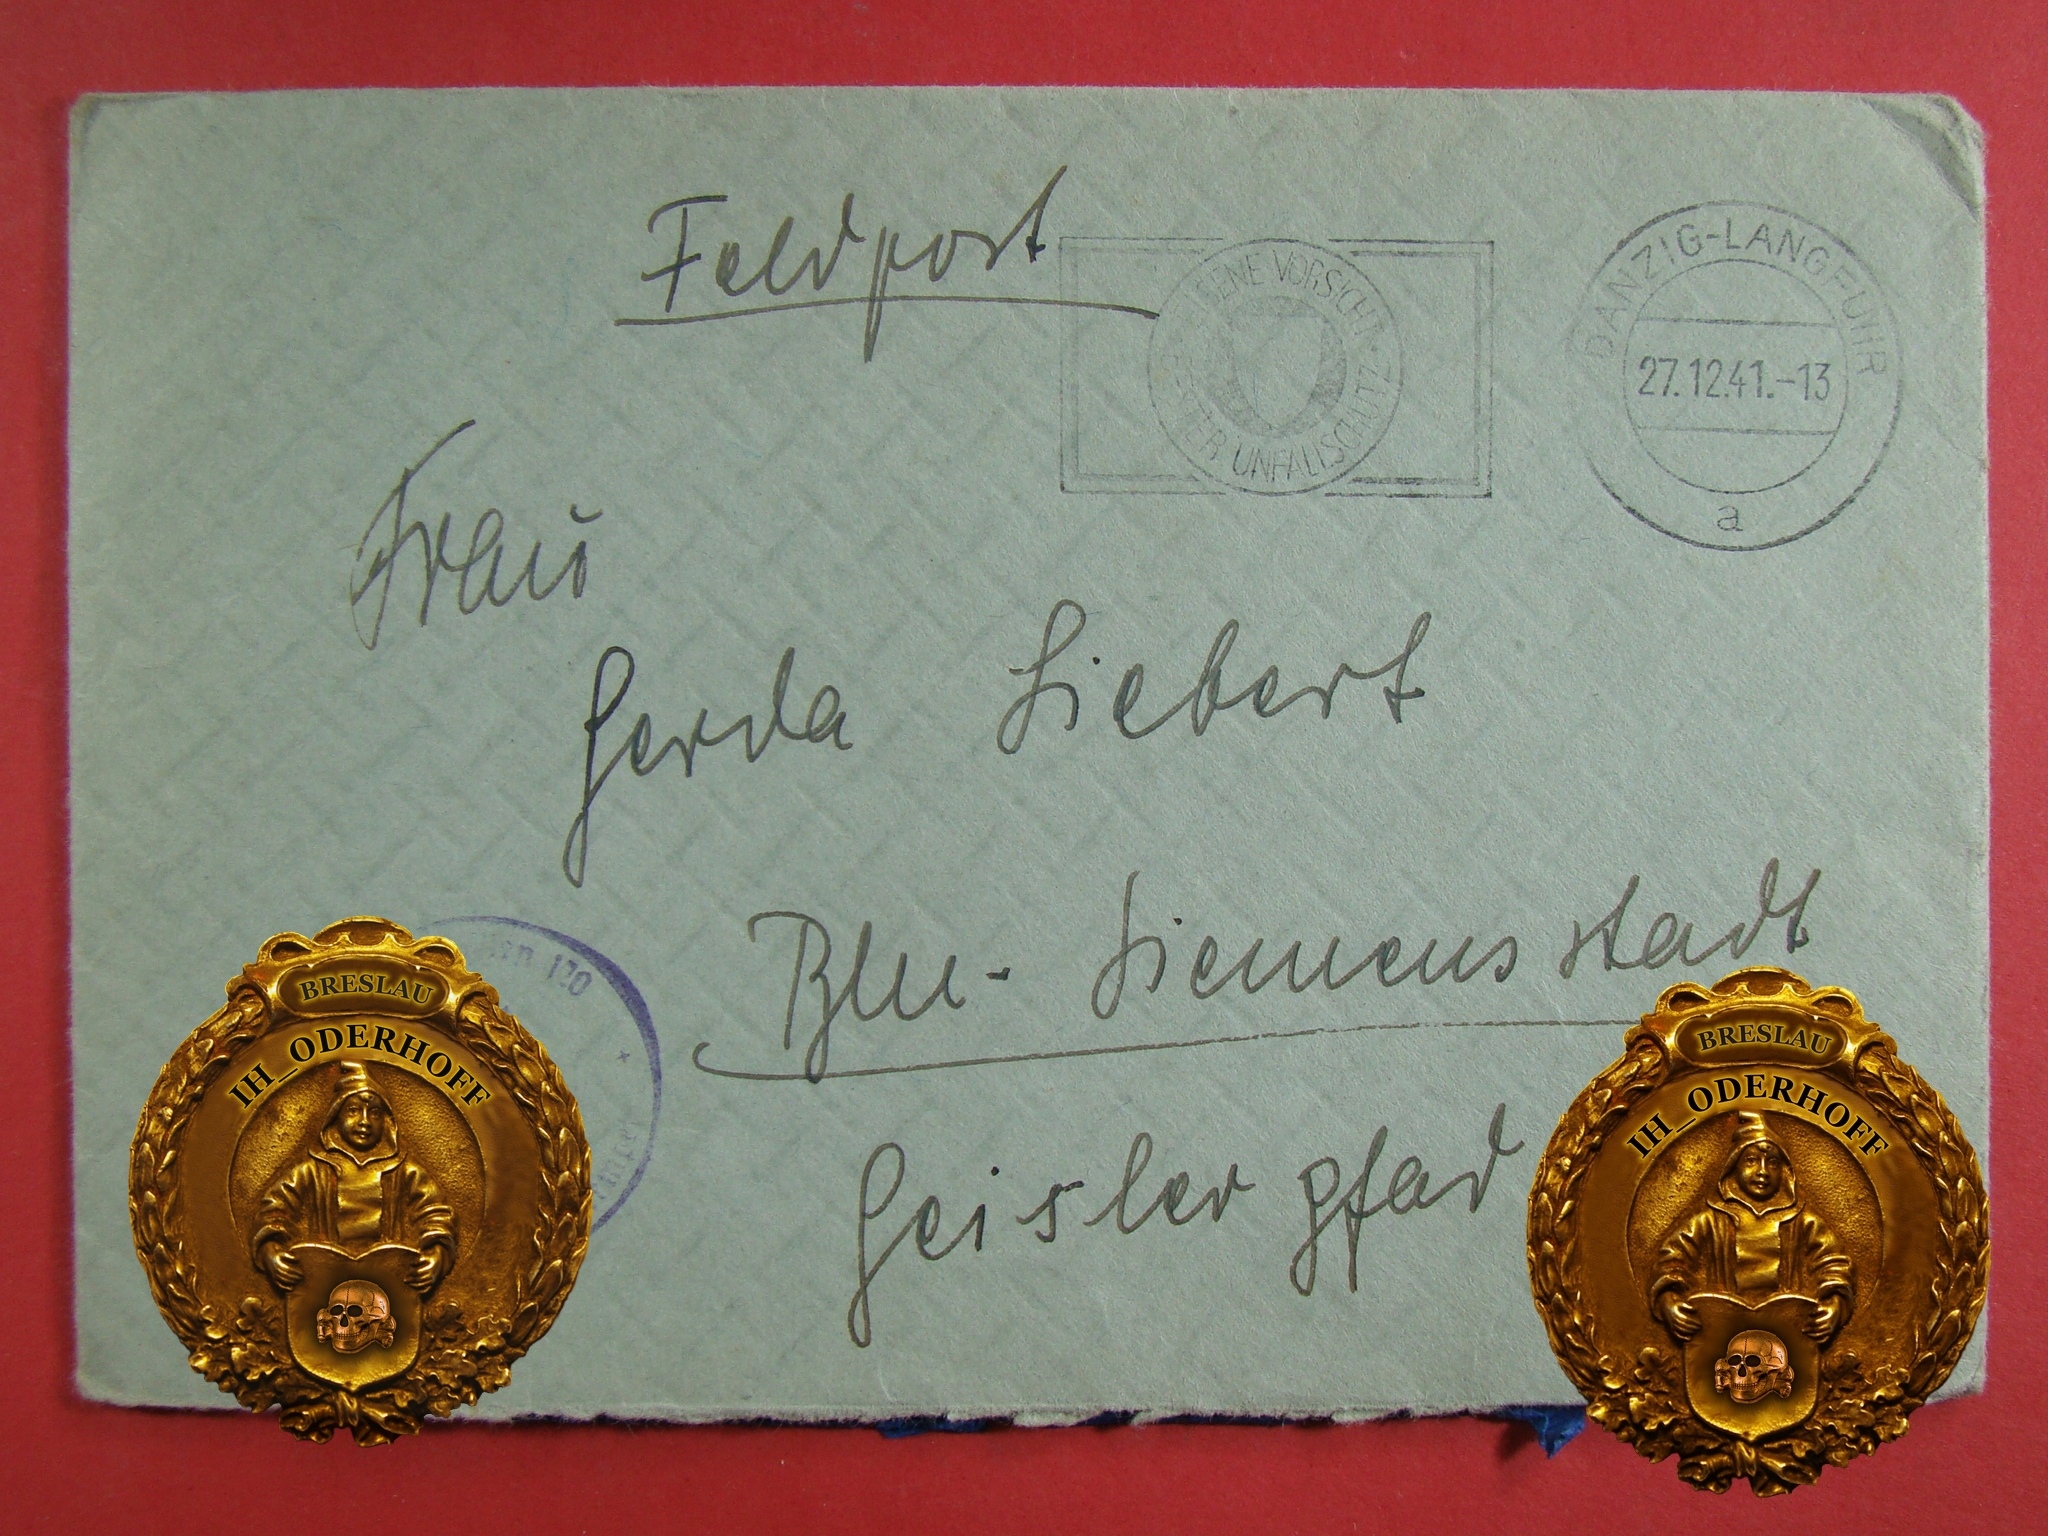 Feldpost
EIGENE VORSICHT-
BESTER UNFALLSCHUTZ
DANZIG-LANGFUHR
27.12.41.-13
a
Frau
Gerda Siebert
Bln-Siemensstadt
Geislerpfad
130
BRESLAU
IH_ODERHOFF
BRESLAU
IH_ODERHOFF